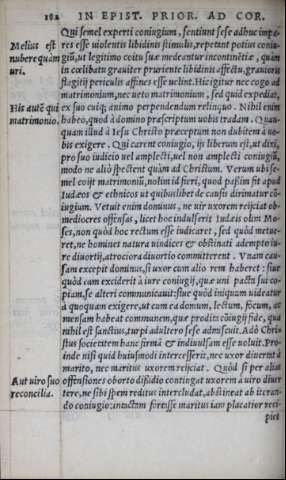 182 IN EPIST. PRIOR. AD COR.
Qui semel experti coniugium, sentiunt sese adhuc impa-
Melius est
res esse uiolentis libidinis stimulis, repetant potius coniu-
nubere quàm
giũ, ut legitimo coitu suæ medeantur incontinẽtiæ, quàm
uri.
in cœlibatu grauiter pruriente libidinis affectu, grauioris
flagitij periculis affines esse uelint. Hic igitur nec cogo ad
matrimonium, nec ueto matrimonium, sed quid expediat,
His autẽ qui
ex suo cuiq; animo perpendendum relinquo. Nihil enim
matrimonio.
habeo, quod à domino præscriptum uobis tradam. Quan-
quam illud à Iesu Christo præceptum non dubitem à uo-
bis exigere. Qui carent coniugio, ijs liberum est, ut dixi,
pro suo iudicio uel amplecti, uel non amplecti coniugiũ,
modo ne aliò spectent quàm ad Christum. Verum ubi se-
mel coijt matrimoniũ, nolim id fieri, quod passim fit apud
Iudæos & ethnicos ut quibuslibet de causis dirimatur cõ-
iugium. Vetuit enim dominus, ne uir uxorem reijciat ob
mediocres offensas, licet hoc indulserit Iudæis olim Mo-
ses, non quòd hoc rectum esse iudicaret, sed quòd metue-
ret, ne homines natura uindices & obstinati adempto iu-
re diuortij, atrociora diuortio committerent. Vnam cau-
sam excepit dominus, si uxor cum alio rem haberet: siue
quòd eam exciderit à iure coniugij, quæ uni pacta sui co-
piam, se alteri communicauit: siue quòd iniquum uideatur
à quoquam exigere, ut cum ea domum, lectum, focum, ac
mensam habeat communem, quæ prodita cõiugij fide, qua
nihil est sanctius, turpi adultero sese admiscuit. Adò Chri-
stus societatem hanc firmã & indiuulsam esse uoluit. Pro-
inde nisi quid huiusmodi intercesserit, nec uxor diuertat à
marito, nec maritus uxorem reijciat. Quòd si per alias
Aut uiro suo
offensiones oborto dissidio contingat uxorem à uiro diuer
reconcilia.
tere, ne sibi spem reditus intercludat, abstineat ab iteran-
do coniugio: intactam fortasse maritus iam placatior reci-
piet